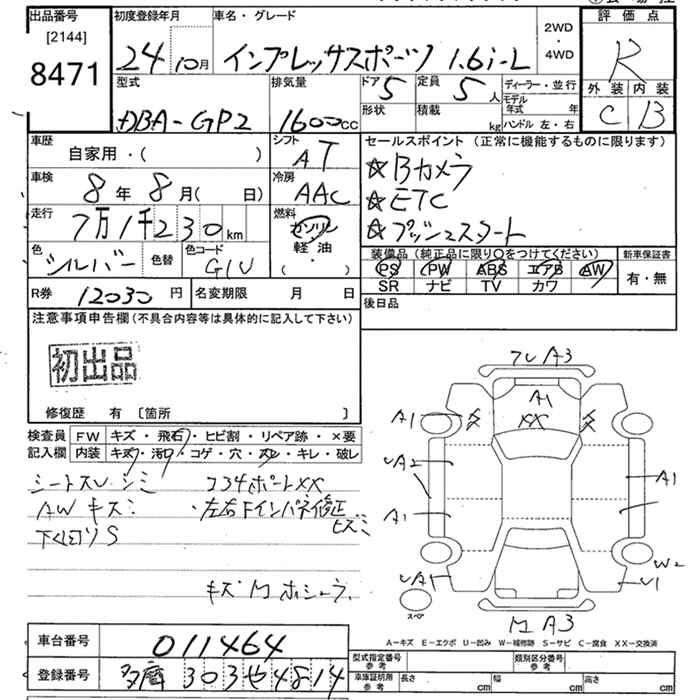 出品番号
[2144]
8471
初度登録年月
24 10月
車名・グレード
インプレッサスポーツ 1.6i-L
2WD
・
4WD
評価点
R
外装 内装
C B
型式
DBA-GP2
排気量
1600cc
ドア 5
定員 5人
形状
積載 kg
ディーラー・並行
モデル年式 年
ハンドル 左・右
車歴
自家用・( )
シフト
AT
車検
8年8月( 日)
冷房
AAC
走行
7万1千230km
燃料
ガソリン
軽油
( ・ )
色
シルバー
色替
色コード
G1U
R券 12030円
名変期限 月 日
セールスポイント (正常に機能するものに限ります)
☆Bカメラ
☆ETC
☆プッシュスタート
装備品 (純正品に限り○をつけてください)
PS PW ABS エアB AW
SR ナビ TV カワ
新車保証書
有・無
後日品
注意事項申告欄(不具合内容等は具体的に記入して下さい)
初出品
修復歴 有 [箇所 ]
検査員記入欄
FW キズ・飛石・ヒビ割・リペア跡・×要
内装 キズ・汚れ・コゲ・穴・スレ・キレ・破レ
シートスレ シミ
AW キズミ
下廻りS
コアサポートXX
・左右Fインパネ修正
ヒズミ
フレ A3
A1
XX
A1
UA2
A1
A1
UA1
W2
U1
スペア
M A3
A=キズ E=エクボ U=凹み W=補修跡 S=サビ C=腐食 XX=交換済
車台番号 011464
登録番号 多摩 303 や 4814
型式指定番号
参考
類別区分番号
参考
車庫証明用
参考
長さ cm
幅 cm
高さ cm